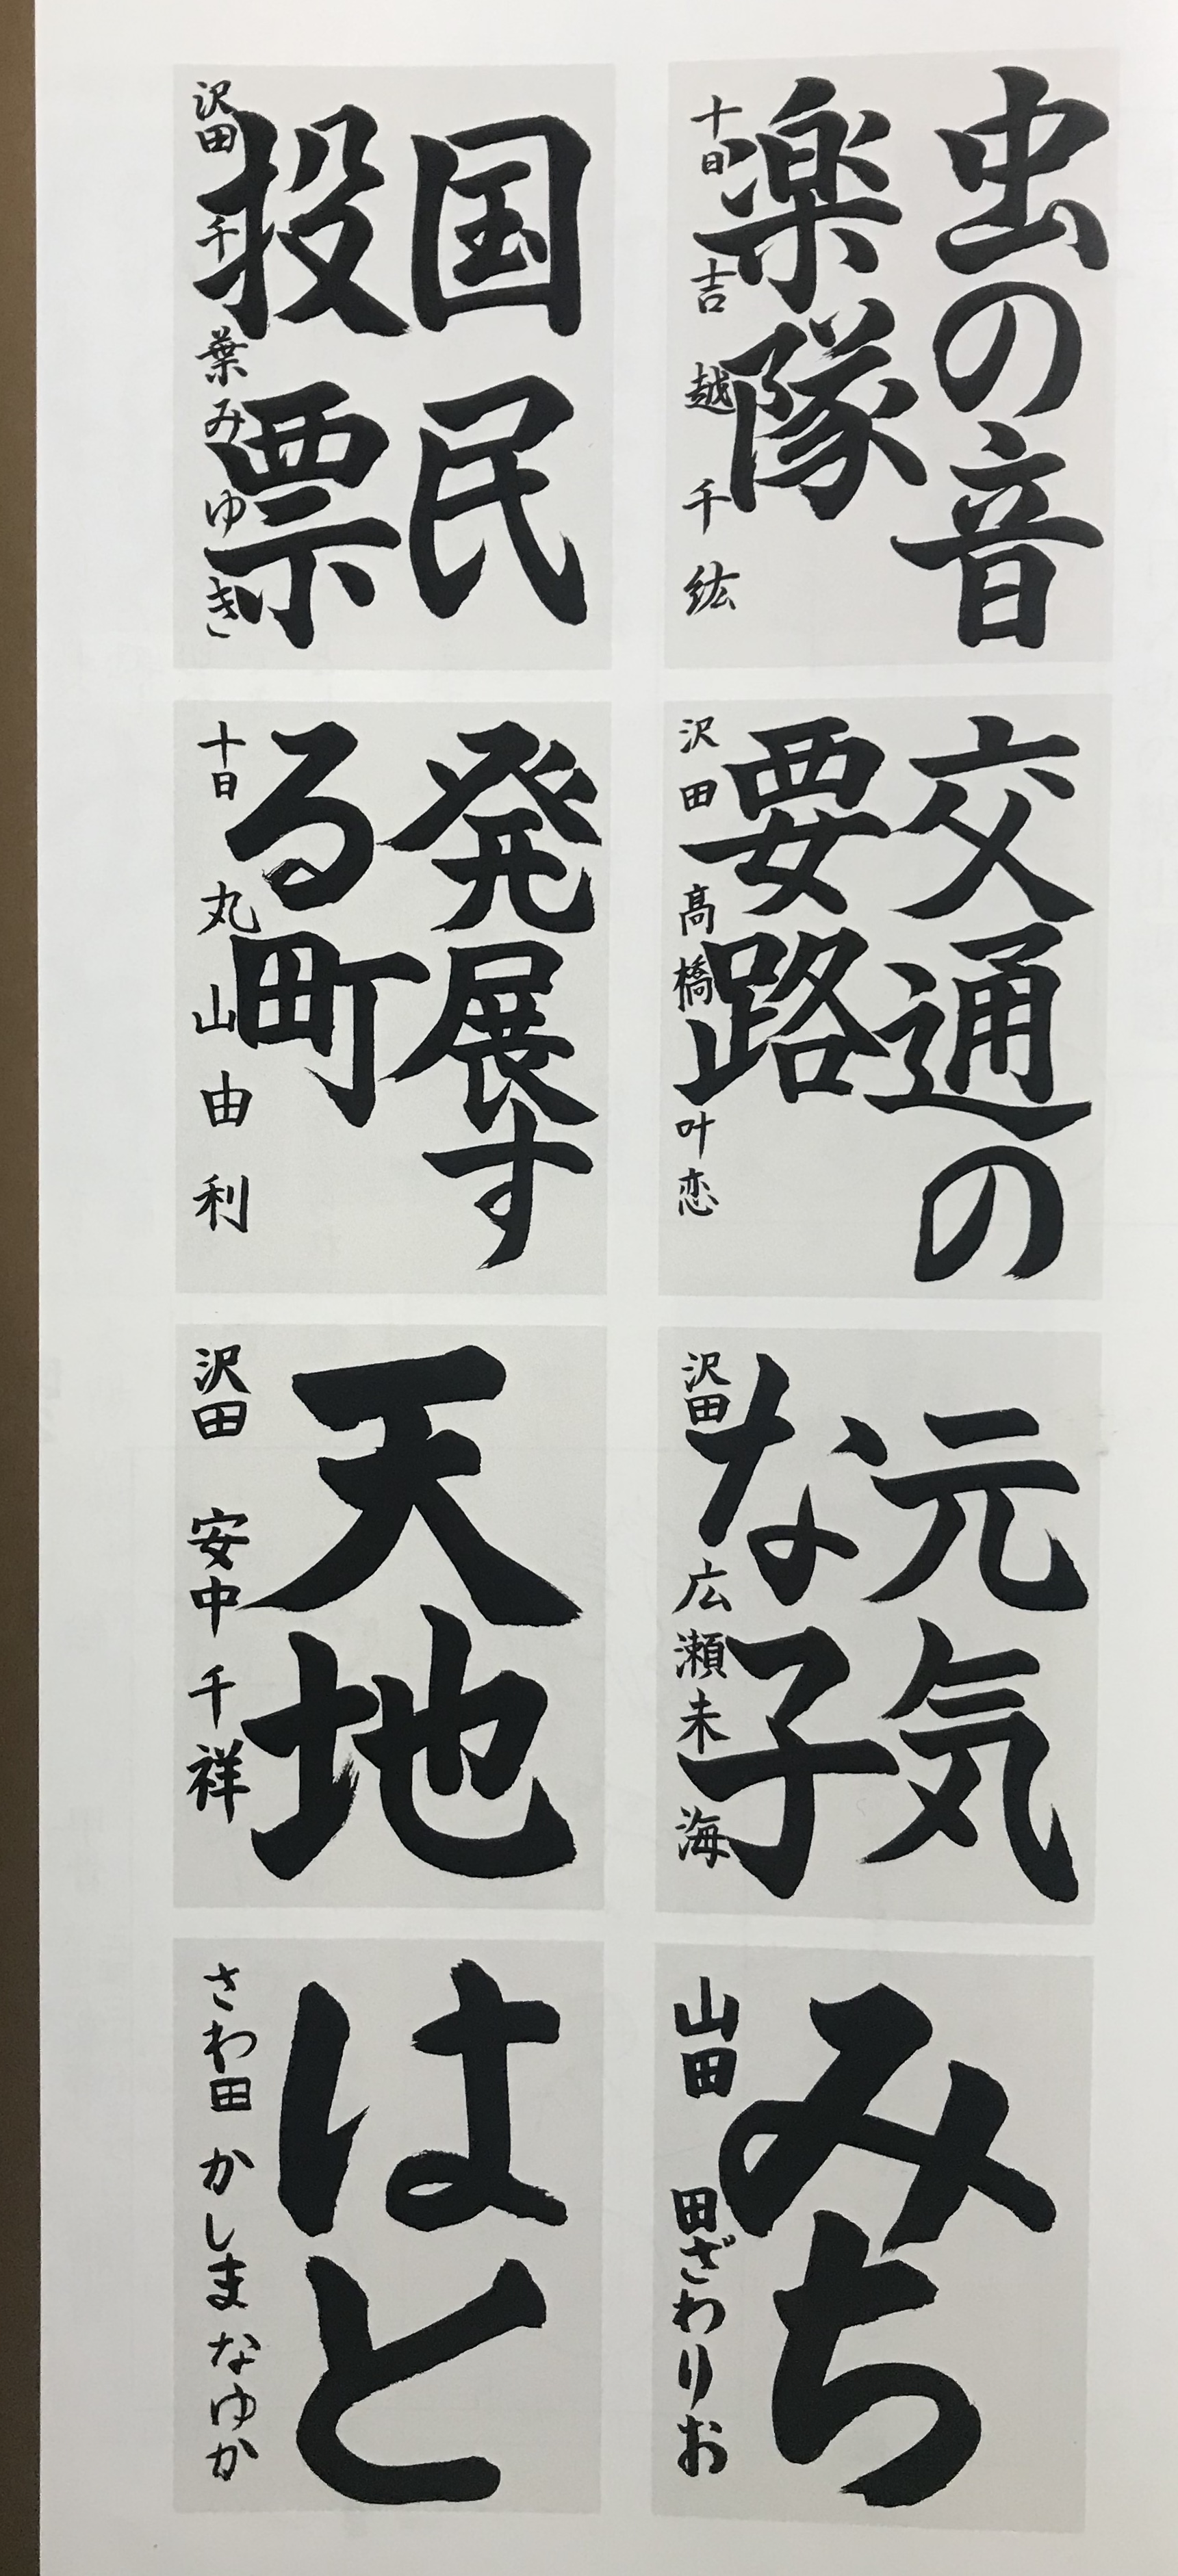 虫の音
楽隊
十日 吉越千紘
国民
投票
沢田 千葉みゆき
交通の
要路
沢田 髙橋叶恋
発展す
る町
十日 丸山由利
元気
な子
沢田 広瀬未海
天地
沢田 安中千祥
みち
山田 田ざわりお
はと
さわ田 かしまなゆか